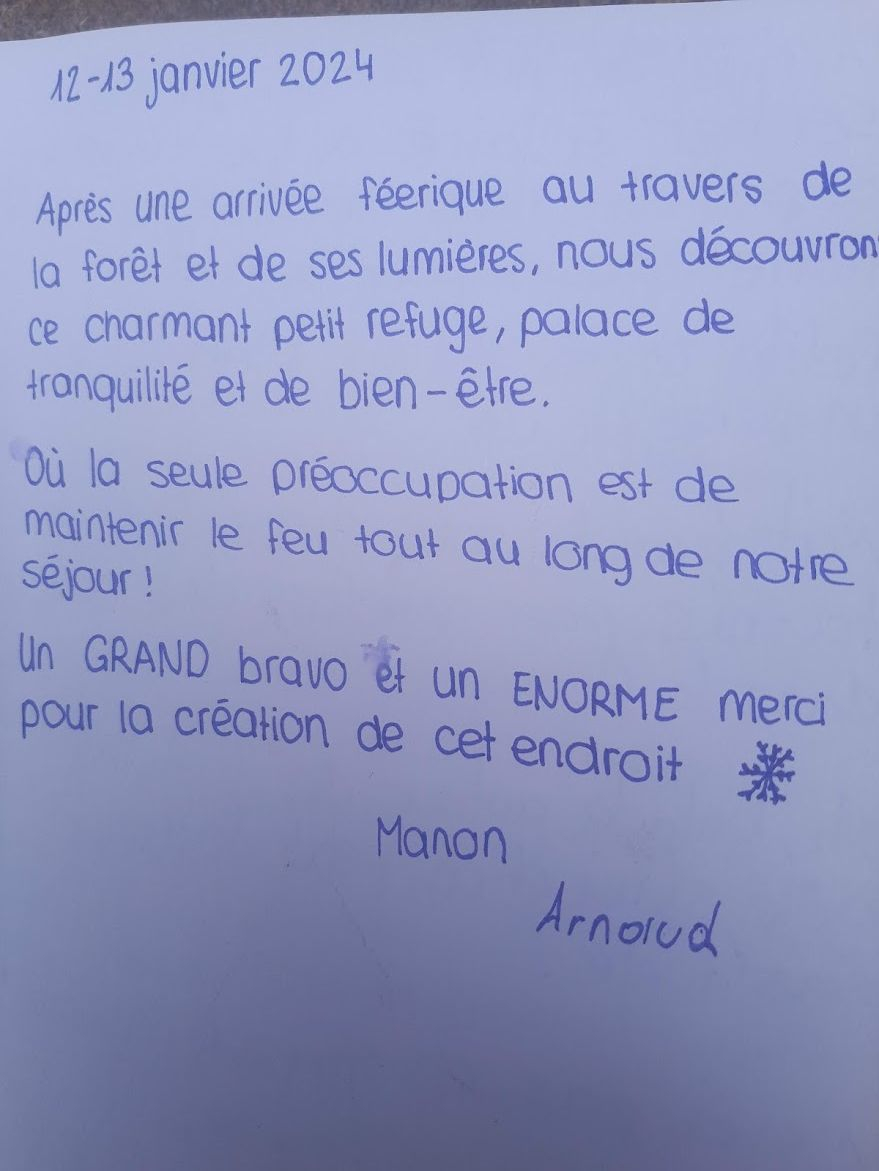 12-13 janvier 2024
Après une arrivée féerique au travers de
la forêt et de ses lumières, nous découvron
ce charmant petit refuge, palace de
tranquilité et de bien-être.
Où la seule préoccupation est de
maintenir le feu tout au long de notre
séjour !
Un GRAND bravo et un ENORME merci
pour la création de cet endroit
Manon
Arnaud